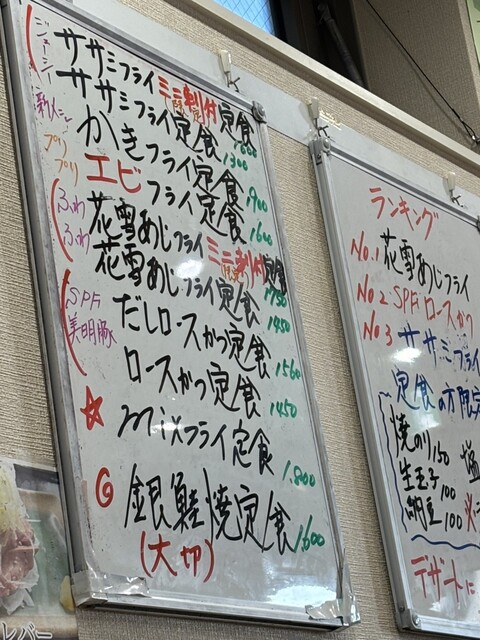 ジューシィ
ササミフライミニ刺付定食 1600
ササミフライ定食 1300
かきフライ定食 1900
プリプリ
エビフライ定食 1600
ふわふわ
花雪あじフライミニ刺付定食 1750
花雪あじフライ定食 1450
SPF
美明豚
だしロースかつ定食 1560
ロースかつ定食 1450
mixフライ定食 1,800
銀鮭焼定食 1,600
(大切)
ランキング
No.1 花雪あじフライ
No2 SPFロースかつ
No3 ササミフライ
定食の方限定
焼のり150
生玉子100
納豆100
塩
デザートに
レバー